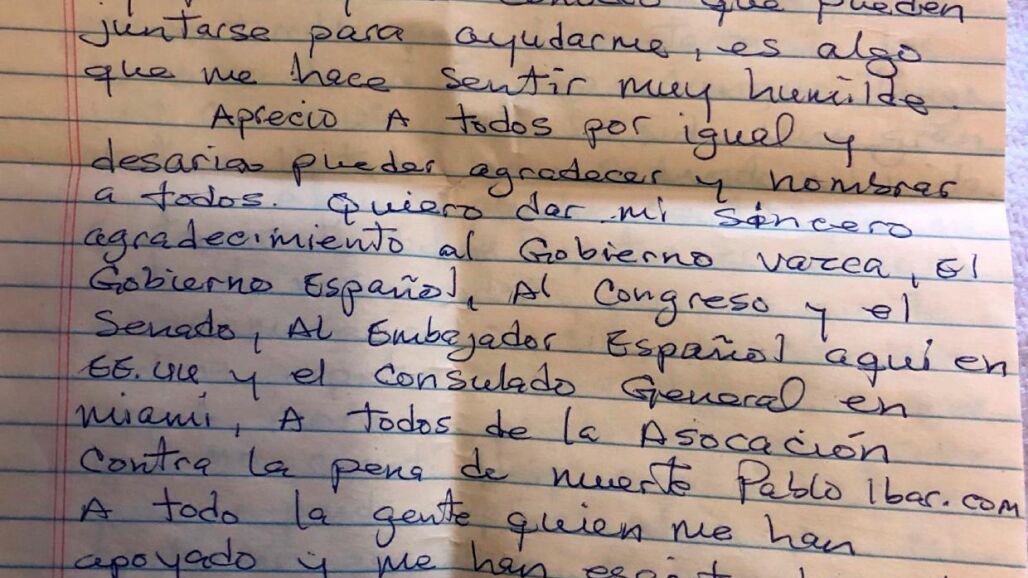 que pueden
juntarse para ayudarme, es algo
que me hace sentir muy humilde.
Aprecio A todos por igual y
desaria pueder agradecer y nombrar
a todos. Quiero dar mi sincero
agradecimiento al Gobierno vazca, El
Gobierno Español, Al Congreso y el
Senado, Al Embajador Español aquí en
EE.UU y el consulado General en
Miami, A todos de la Asocación
Contra la pena de muerte Pablo Ibar.com
A todo la gente quien me han
apoyado y me han